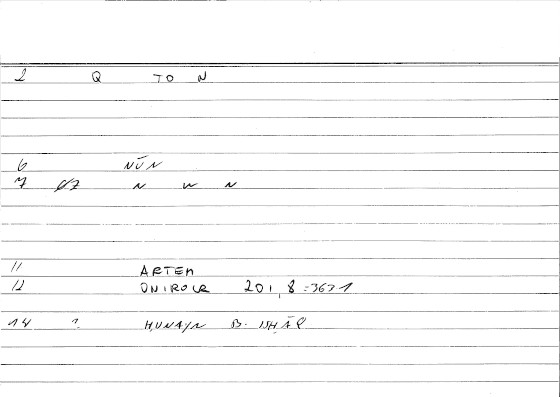 2 Q TO N
6 NŪN
7 07 N W N
11 ARTEM
12 ONIROCR 201,8 = 363 1
14 1. HUNAYN B. ISHĀQ